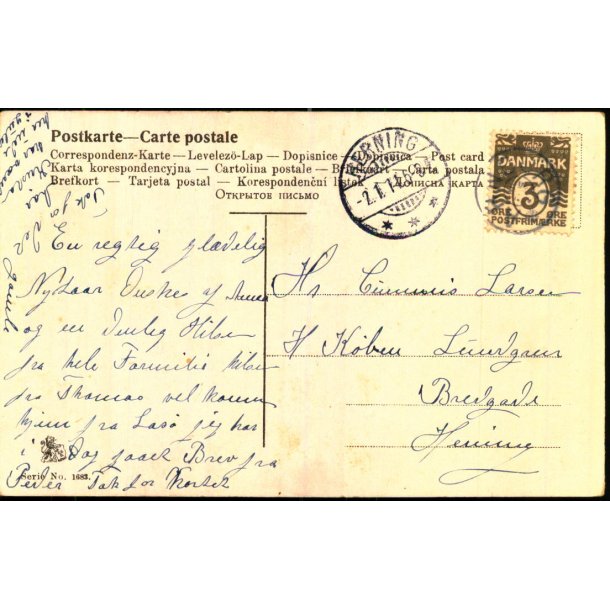 Postkarte—Carte postale
Correspondenz-Karte — Levelező-Lap — Dopisnice — Dopisnica — Post card
Karta korespondencyjna — Cartolina postale — Briefkort — Carta postala
Brefkort — Tarjeta postal — Korespondenční lístek —
Открытое письмо
2.1.12
DANMARK
3
ØRE ØRE
POSTFRIMÆRKE
Tak for det
gamle
En regtig glædelig
Nytaar Ønskes af Anna
og en Venlig Hilsen
fra hele Familie hilsen
fra Thomas vel kommen
hjem fra Læsø jeg har
i Dag faaet Brev fra
Peder Tak for Kortet
Serie No. 1683.
Hr Larsen
H Købm Lundgren
Bredgade
Herning